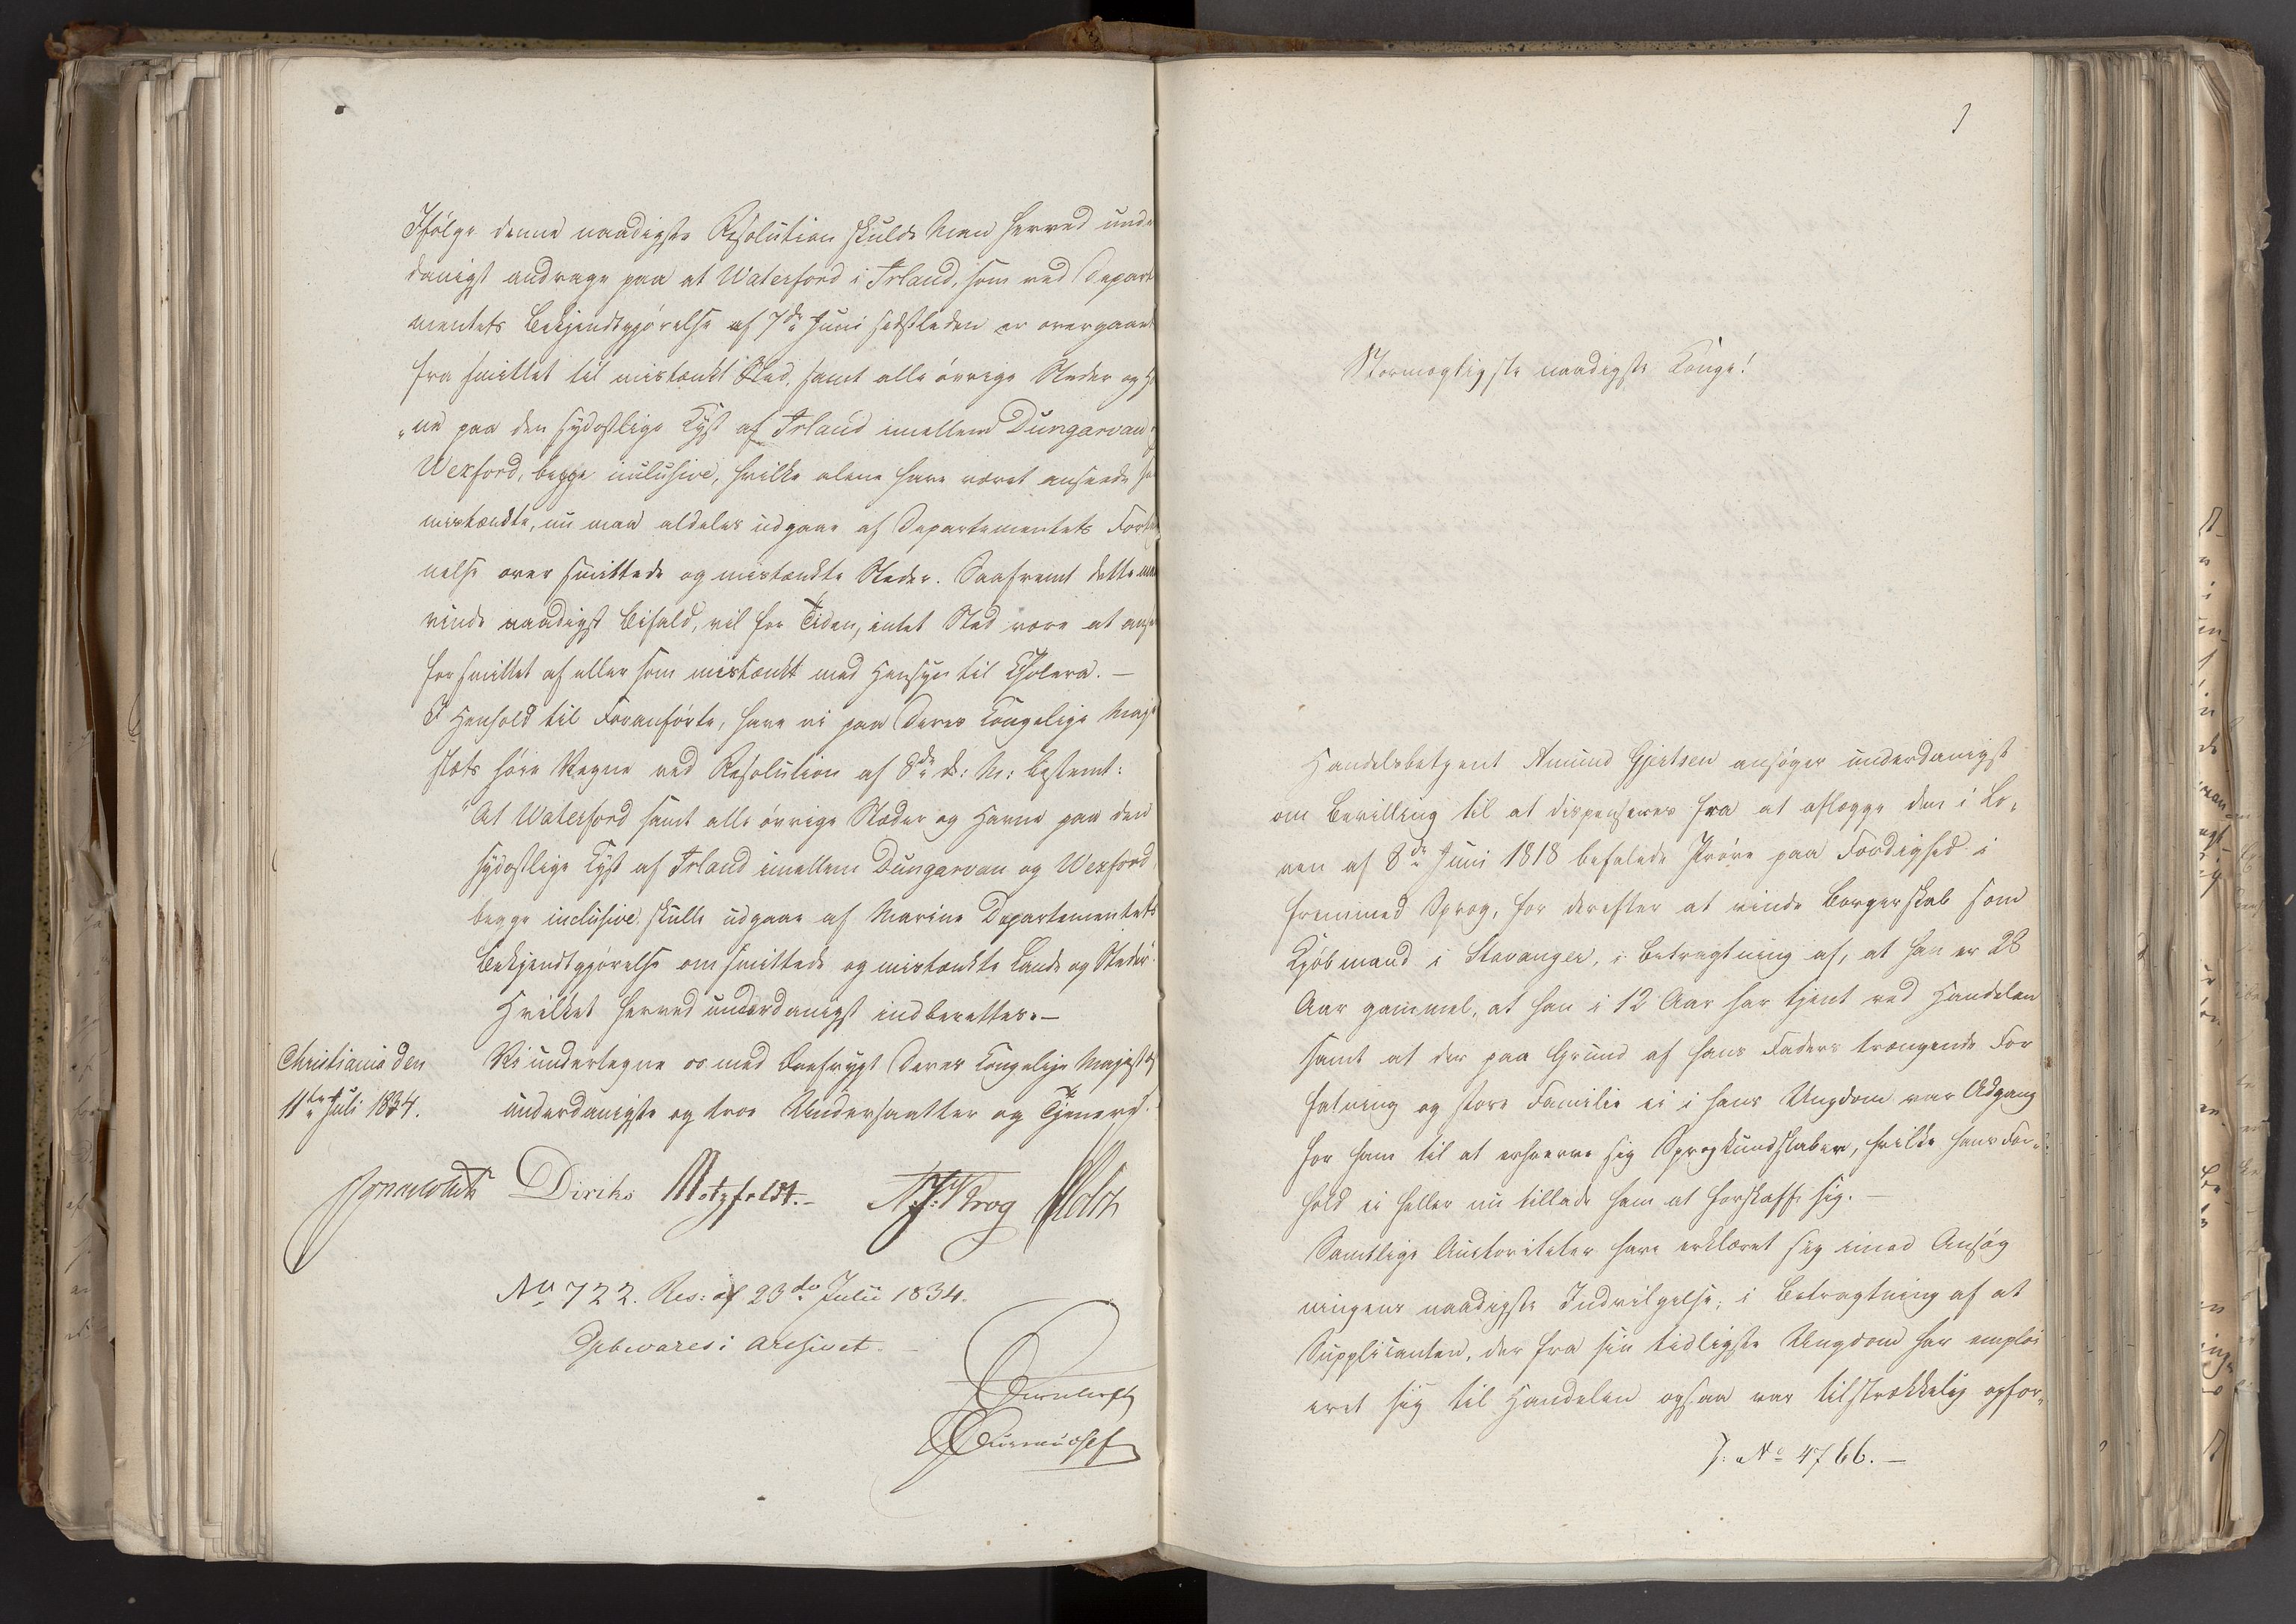 Ifølge denne naadigste Resolution skulde Man herved unde
danigst andrage paa at Waterford i Irland, som ved Depart
mentets Bekjendtgjørelse af 7de Juni sidstleden er overgaaet
fra smittet til mistænkt Sted, samt alle øvrige Steder og H
ne paa den sydostlige Kyst af Irland imellem Dungarvan
Wexford, begge inclusive, hvilke alene have været anseede so
mistænkte, nu maa aldeles udgaae af Departementets Forteg
nelse over smittede og mistænkte Steder. Saafremt dette maa
vinde naadigst Bifald, vil for Tiden, intet Sted være at ansee
for smittet af eller som mistænkt med Hensyn til Cholera. —
I Henhold til Foranførte, have vi paa Deres Kongelige Maje
stæts høie Vegne ved Resolution af 8de d: M: bestemt:
"At Waterford samt alle øvrige Steder og Havne paa den
sydostlige Kyst af Irland imellem Dungarvan og Wexford,
begge inclusive skulle udgaae af Marine Departementets
Bekjendtgjørelse om smittede og mistænkte Lande og Steder."
Hvilket herved underdanigst indberettes. —
Christiania den
11te Juli 1834.
Vi undertegne os med Ærefrygt Deres Kongelige Majestæts
underdanigste og troe Undersaatter og Tjenere.
Diriks Motzfeldt. — Krog Holst
No 722. Res: af 23de Julii 1834.
Gjebevares i Archivet. —
Stormægtigste naadigste Konge!
Handelsbetjent Amund Gjertsen ansøger underdanigst
om Bevilling til at dispenseres fra at aflægge den i Lo-
ven af 8de Juni 1818 befalede Prøve paa Færdighed i
fremmed Sprog, for derefter at vinde Borgerskab som
Kjøbmand i Stavanger, i Betragtning af, at han er 28
Aar gammel, at han i 12 Aar har tjent ved Handelen
samt at der paa Grund af hans Faders trængende For
fatning og store Familie ei i hans Ungdom var Adgang
for ham til at erhverve sig Sprogkundskaber, hvilke hans For-
hold ei heller nu tillade ham at forskaffe sig. —
Samtlige Auctoriteter have erklæret sig imod Ansøg
ningens naadigste Indvilgelse, i Betragtning af at
Supplicanten, der fra sin tidligste Ungdom har emploi
eret sig til Handelen ogsaa var tilstrækkelig opfor-
J: No 4766. —